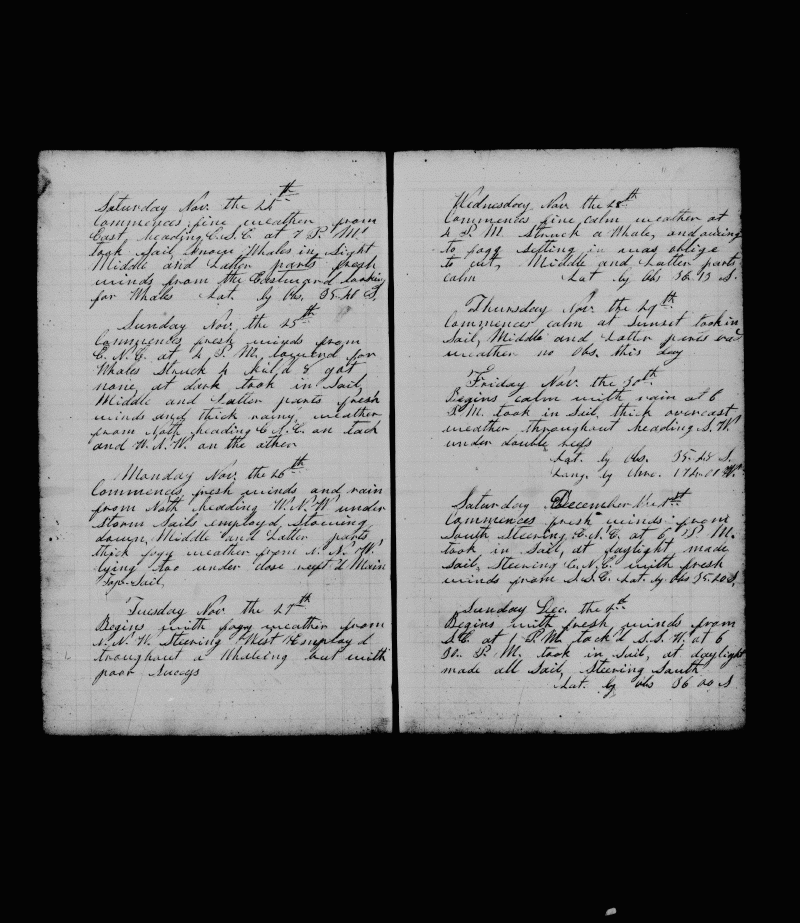 Saturday Nov. the 24th
Commences fine weather from
East, heading E.S.E. at 7 P.M.
took Sail Hnow Whales in Sight
Middle and Latter parts fresh
winds from the Eastward looking
for Whales Lat. by Obs. 35.40 S.
Sunday Nov. the 25th
Commences fresh winds from
E.N.E. at 4 P.M. lowered for
Whales Struck 4 kild & got
none, at dark took in Sail,
Middle and Latter parts fresh
winds and thick rainy weather
from Noth heading E.N.E. on tack
and W.N.W. on the other
Monday Nov. the 26th
Commences fresh winds and rain
from Noth heading W.N.W. under
Storm Sails employd, Stowing
down, Middle and Latter parts,
thick fogy weather from N.N.W.
lying too under close reeft Main
Top-Sail,
Tuesday Nov. the 27th
Begins with fogy weather from
N.N.W. Steering West Employd
troughout a Whaleing but with
poor Success
Wednesday Nov. the 28th
Commences fine calm weather at
4 P.M. Struck a Whale, and
to fogg Setting in was oblige
to cut, Middle and Latter parts
calm Lat by Obs 36.13 S.
Thursday Nov. the 29th
Commences calm at Sunset took in
Sail, Middle and Latter parts
weather no Obs. this day
Friday Nov. the 30th
Begins calm with rain at 6
P.M. took in Sail, thick overcast
weather throughout heading S.W.
under double reefs
Lat. by Obs. 35.48 S.
Long. by Chro. 174.01 W.
Saturday December the 1st
Commences fresh winds from
South Steering E.N.E. at 6 P.M.
took in Sail, at daylight made
Sail, Steering E.N.E. with fresh
winds from S.S.E. Lat. by Obs 35.40 S.
Sunday Dec. the 2th
Begins with fresh winds from
S.E. at 1 P.M. tack'd S.S.W. at 6
30. P.M. took in Sail, at daylight
made all Sail, Steering South
Lat. by Obs 36 00 S